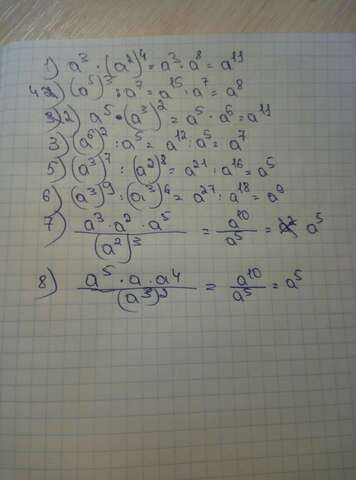 1) a³ · (a²)⁴ = a³ · a⁸ = a¹¹
4) (a⁵)³ : a⁷ = a¹⁵ : a⁷ = a⁸
2) a⁵ · (a³)² = a⁵ · a⁶ = a¹¹
3) (a⁶)² : a⁵ = a¹² : a⁵ = a⁷
5) (a³)⁷ : (a²)⁸ = a²¹ : a¹⁶ = a⁵
6) (a³)⁹ : (a³)⁶ = a²⁷ : a¹⁸ = a⁹
7) a³ · a² · a⁵ / (a²)³ = a¹⁰ / a⁵ = a⁵
8) a⁵ · a · a⁴ / (a³)² = a¹⁰ / a⁵ = a⁵